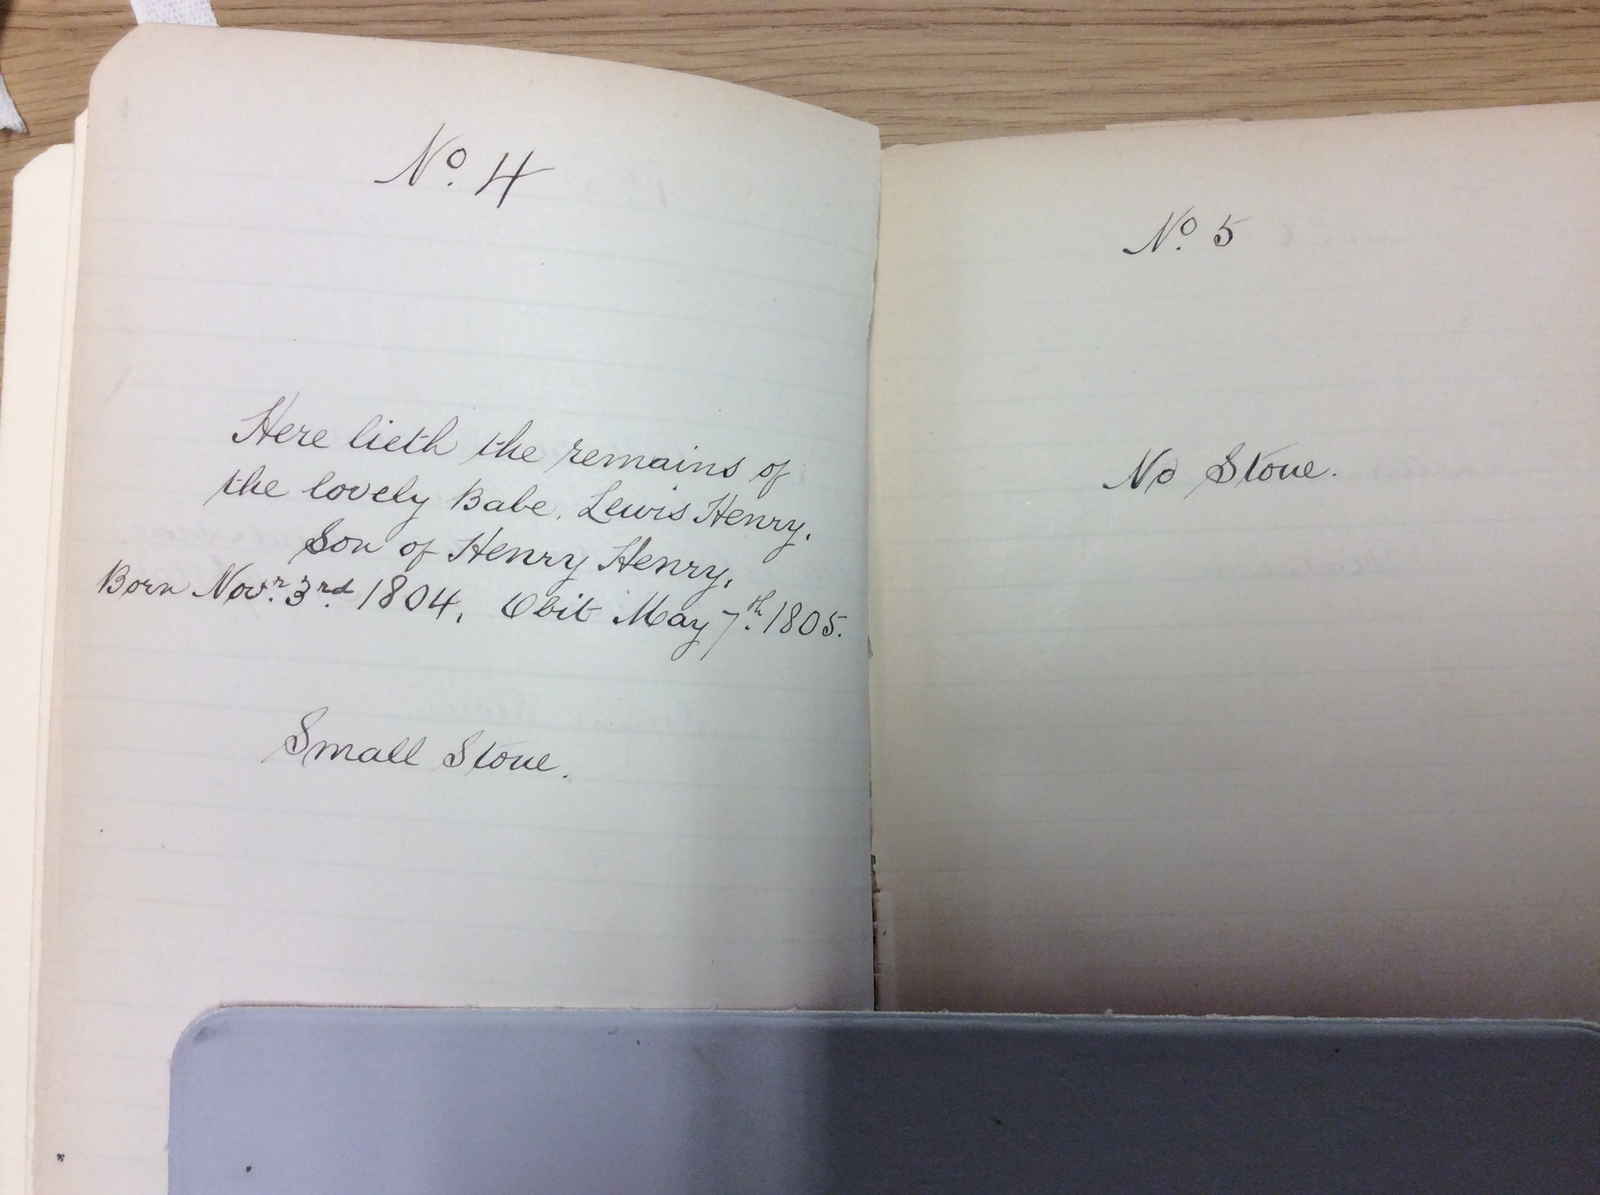 No. 4
Here lieth the remains of
the lovely Babe. Lewis Henry.
Son of Henry Henry.
Born Novr. 3rd. 1804. Obit May 7th. 1805.
Small Stone.
No. 5
No Stone.